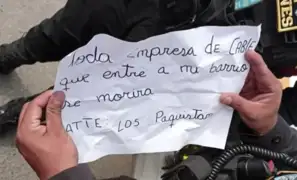 Toda empresa de CABLE
que entre a mi barrio
se morira
ATTE: Los Paquistar